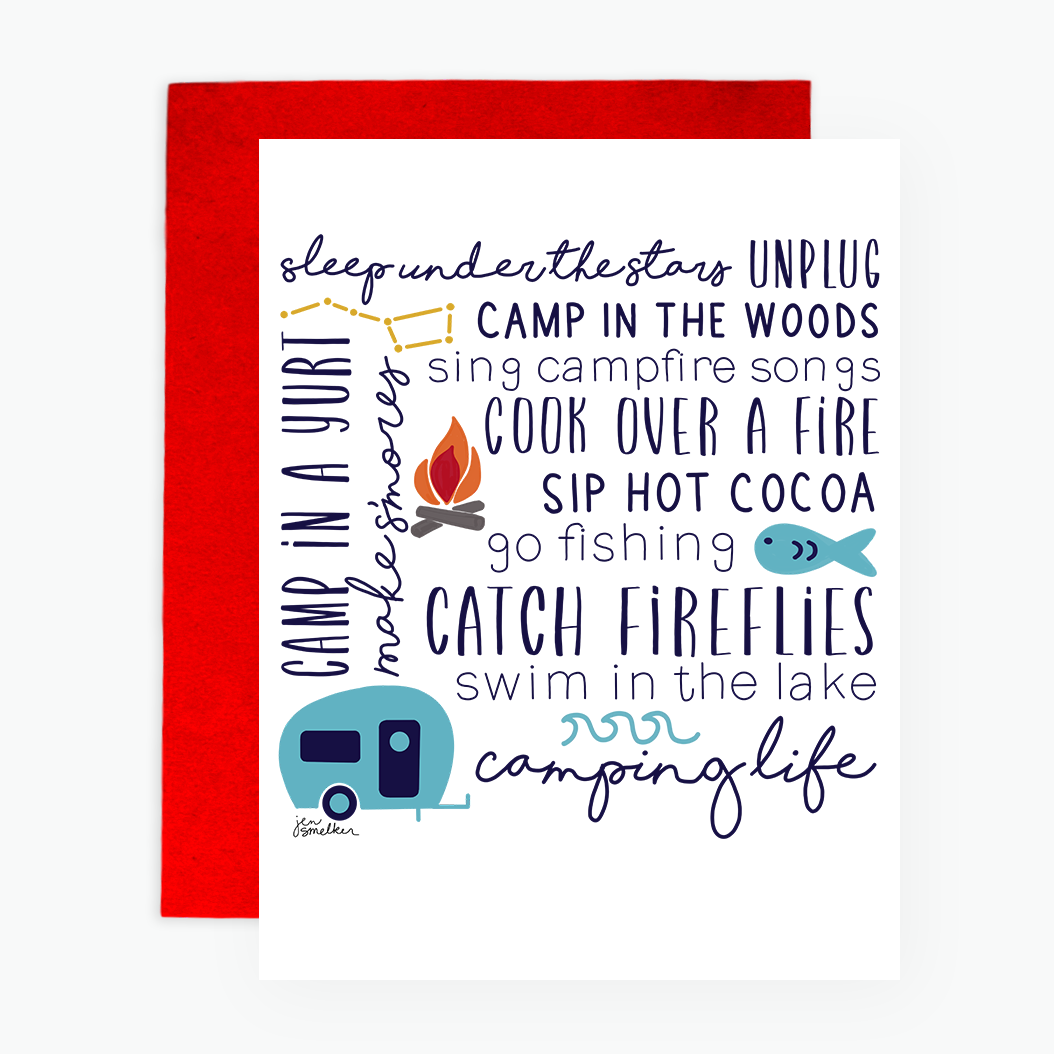 sleep under the stars
UNPLUG
CAMP IN THE WOODS
sing campfire songs
CAMP iN A YURT
make s'mores
COOK OVER A FiRE
SIP HOT COCOA
go fishing
CATCH FiREFLiES
swim in the lake
camping life
jen
smelker